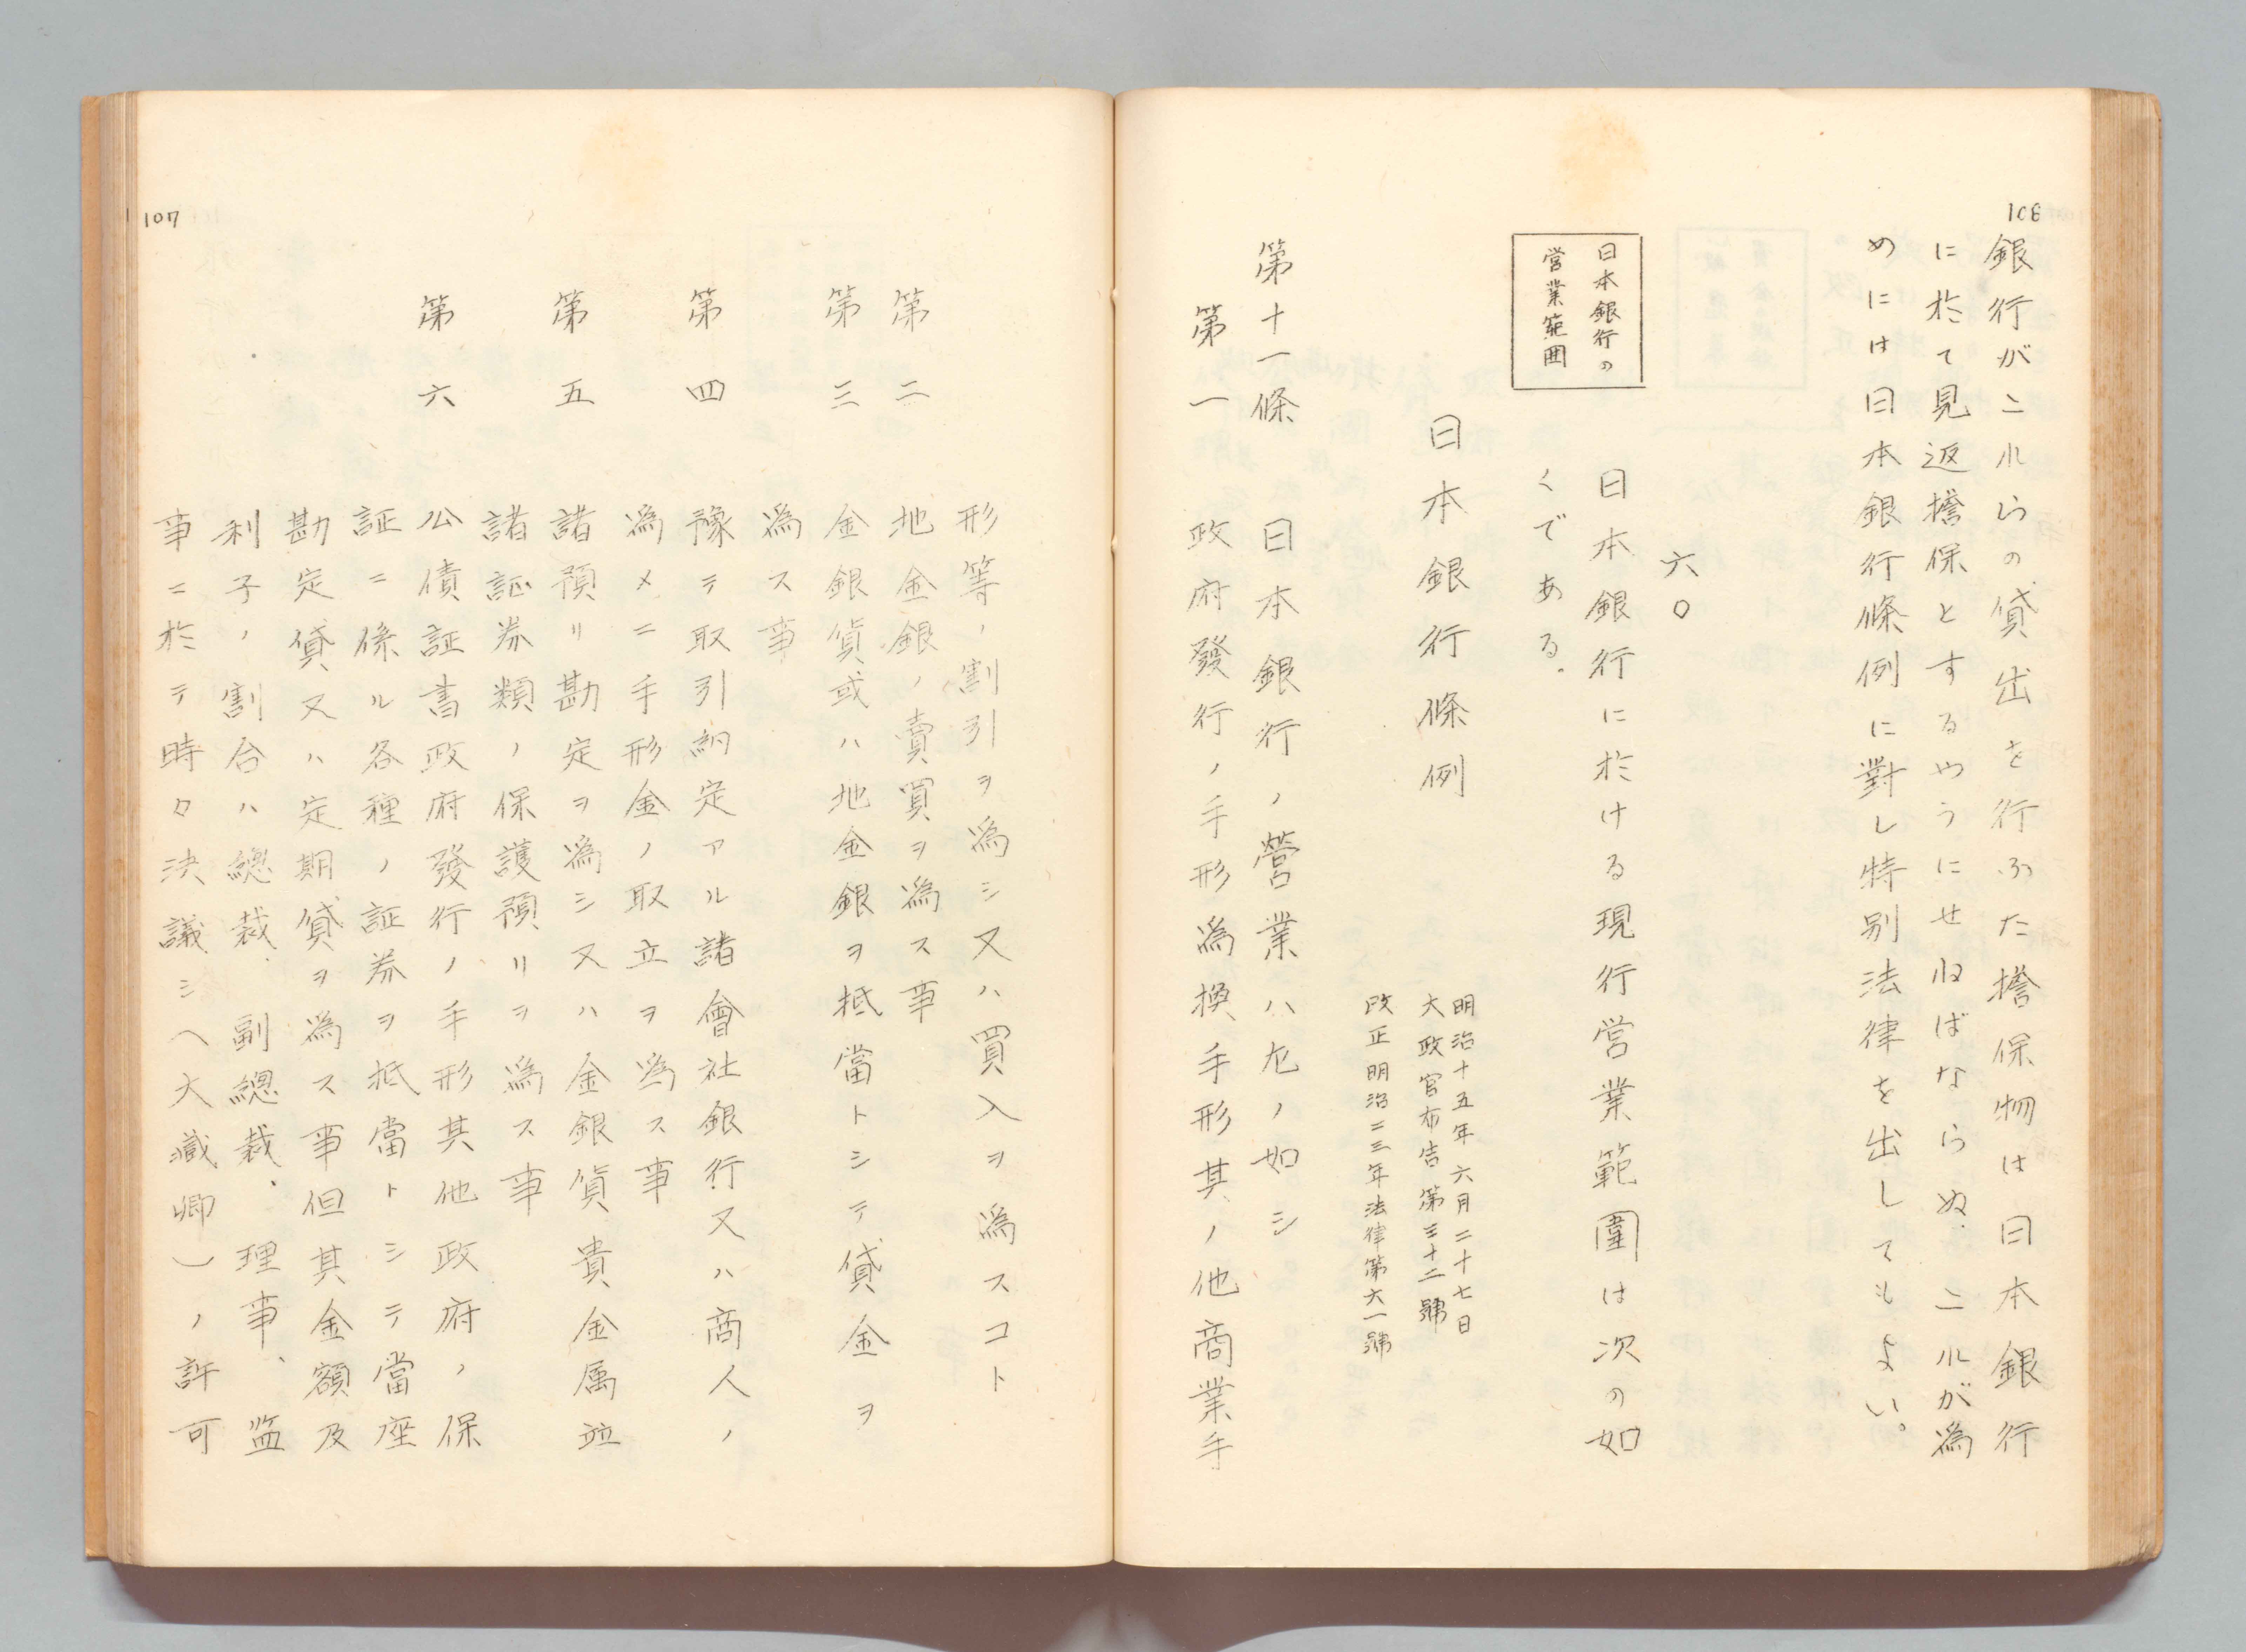 108
銀行がこれらの貸出を行ふた擔保物は日本銀行
に於て見返擔保とするやうにせねばならぬ. これが為
めには日本銀行條例に對し特別法律を出してもよい。
六〇
日本銀行の
営業範囲
日本銀行に於ける現行営業範圍は次の如
くである.
日本銀行條例
明治十五年六月二十七日
大政官布告第三十二號
改正明治二三年法律第六一號
第十一條 日本銀行ノ營業ハ左ノ如シ
第一 政府發行ノ手形為換手形其ノ他商業手
形等ノ割引ヲ為シ又ハ買入ヲ為スコト
第二 地金銀ノ賣買ヲ為ス事
第三 金銀貨或ハ地金銀ヲ抵當トシテ貸金ヲ
為ス事
第四 豫テ取引約定アル諸會社銀行又ハ商人ノ
為メニ手形金ノ取立ヲ為ス事
第五 諸預リ勘定ヲ為シ又ハ金銀貨貴金属並
諸証券類ノ保護預リヲ為ス事
第六 公債証書政府發行ノ手形其他政府ノ保
証ニ係ル各種ノ証券ヲ抵當トシテ當座
勘定貸又ハ定期貸ヲ為ス事但其金額及
利子ノ割合ハ總裁、副總裁、理事、監
事ニ於テ時々決議シ(大蔵卿)ノ許可
107